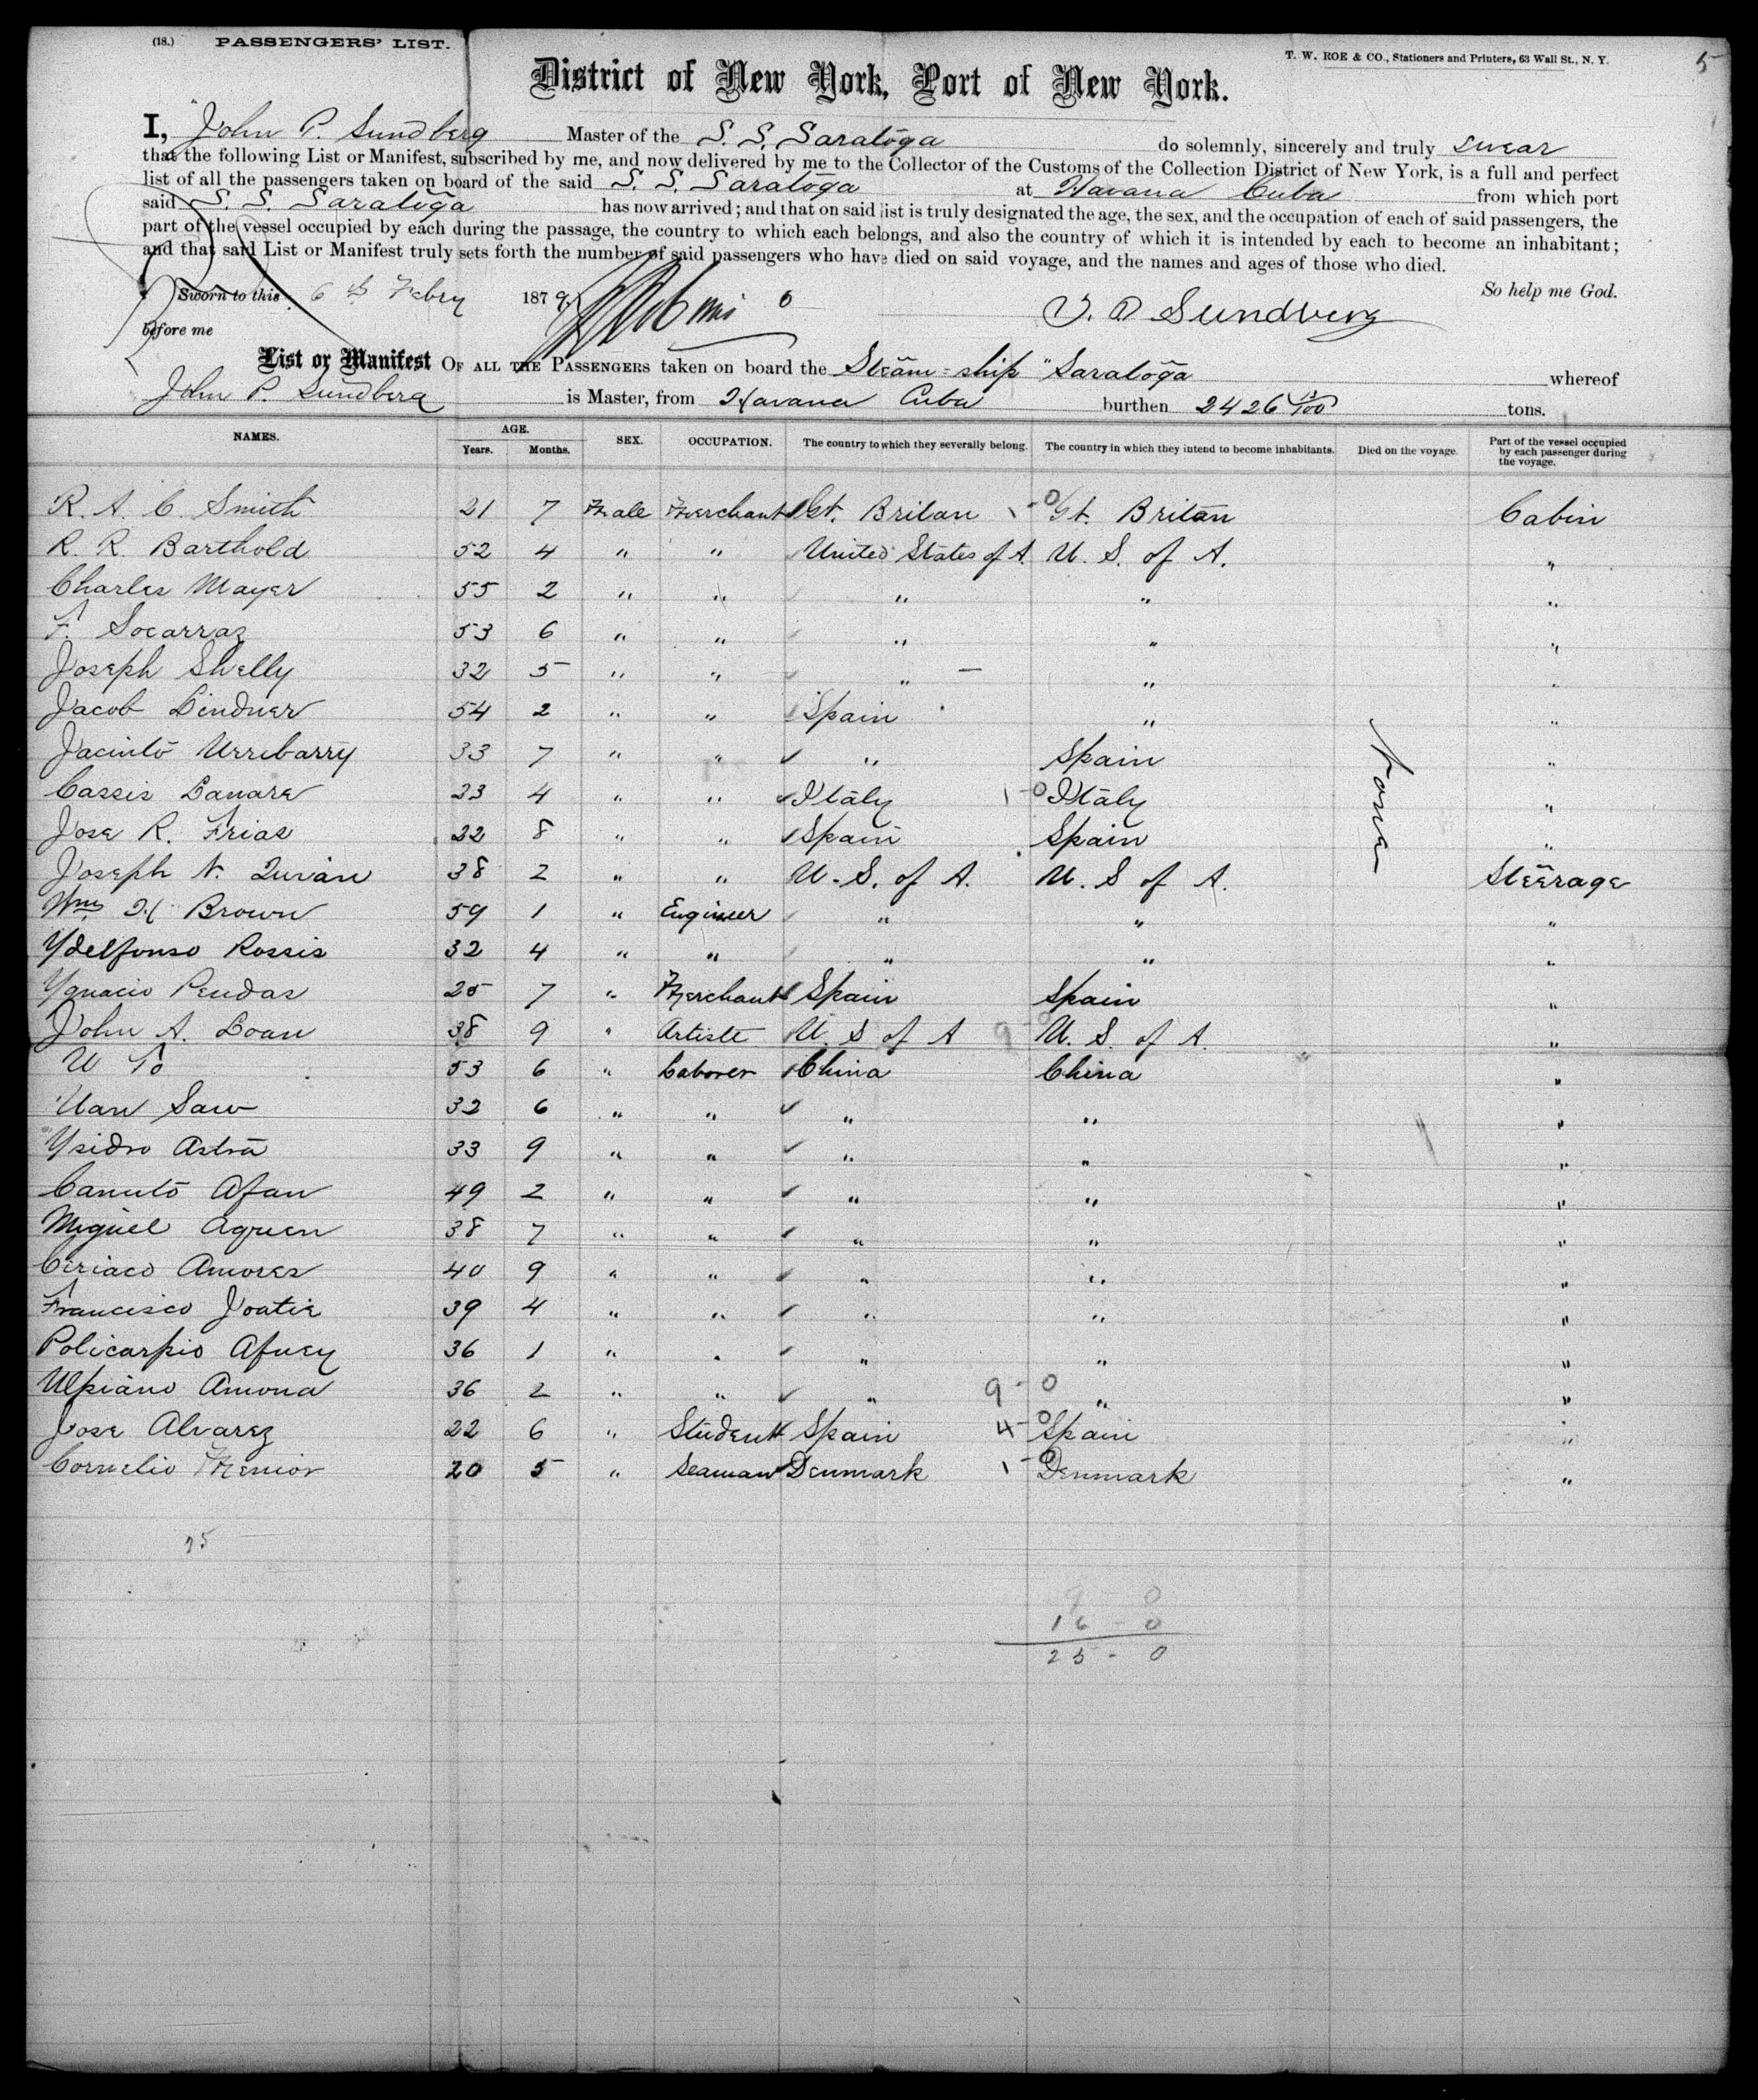 (18.) PASSENGERS' LIST.
T. W. ROE & CO., Stationers and Printers, 63 Wall St., N. Y.
5
District of New York, Port of New York.
I, John P. Sundberg Master of the S. S. Saratoga do solemnly, sincerely and truly swear
that the following List or Manifest, subscribed by me, and now delivered by me to the Collector of the Customs of the Collection District of New York, is a full and perfect
list of all the passengers taken on board of the said S. S. Saratoga at Havana Cuba from which port
said S. S. Saratoga has now arrived; and that on said list is truly designated the age, the sex, and the occupation of each of said passengers, the
part of the vessel occupied by each during the passage, the country to which each belongs, and also the country of which it is intended by each to become an inhabitant;
and that said List or Manifest truly sets forth the number of said passengers who have died on said voyage, and the names and ages of those who died.
So help me God.
Sworn to this 6th Febry 1879.
J. P. Sundberg
before me
List or Manifest OF ALL THE PASSENGERS taken on board the Steam-ship "Saratoga whereof
John P. Sundberg is Master, from Havana Cuba burthen 2426 13/100 tons.
NAMES. AGE. Years. Months. SEX. OCCUPATION. The country to which they severally belong. The country in which they intend to become inhabitants. Died on the voyage. Part of the vessel occupied by each passenger during the voyage.
R. A. C. Smith 21 7 Male Merchant Gt. Britan 1-0 Gt. Britan Cabin
R. R. Barthold 52 4 " " United States of A. U. S. of A. "
Charles Mayer 55 2 " " " " "
F. Socarraz 53 6 " " " " "
Joseph Shelly 32 5 " " " " "
Jacob Lindner 54 2 " " Spain " "
Jacinto Urrebarry 33 7 " " " Spain "
Cassis Lanare 23 4 " " Italy 1-0 Italy "
Jose R. Frias 22 8 " " Spain Spain "
None
Joseph N. 38 2 " " U. S. of A. U. S of A. Steerage
Wm H Brown 59 1 " Engineer " " "
Ydelfonso Rossis 32 4 " " " " "
Ygnacio Pendas 25 7 " Merchant Spain Spain "
John A. Loan 38 9 " Artiste U. S of A 9-0 U. S. of A. "
U To 53 6 " Laborer China China "
Uan Saw 32 6 " " " " "
Ysidro Astra 33 9 " " " " "
Canuto Afan 49 2 " " " " "
Miguel Aguen 38 7 " " " " "
Ciriaco Amores 40 9 " " " " "
Francisco Joatie 39 4 " " " " "
Policarpio Afuey 36 1 " " " " "
Ulpiano Amona 36 2 " " " 9-0 " "
Jose Alvarez 22 6 " Student Spain 4-0 Spain "
Cornelio 20 5 " Seaman Denmark 1-0 Denmark "
25
9 0
16 - 0
25 - 0